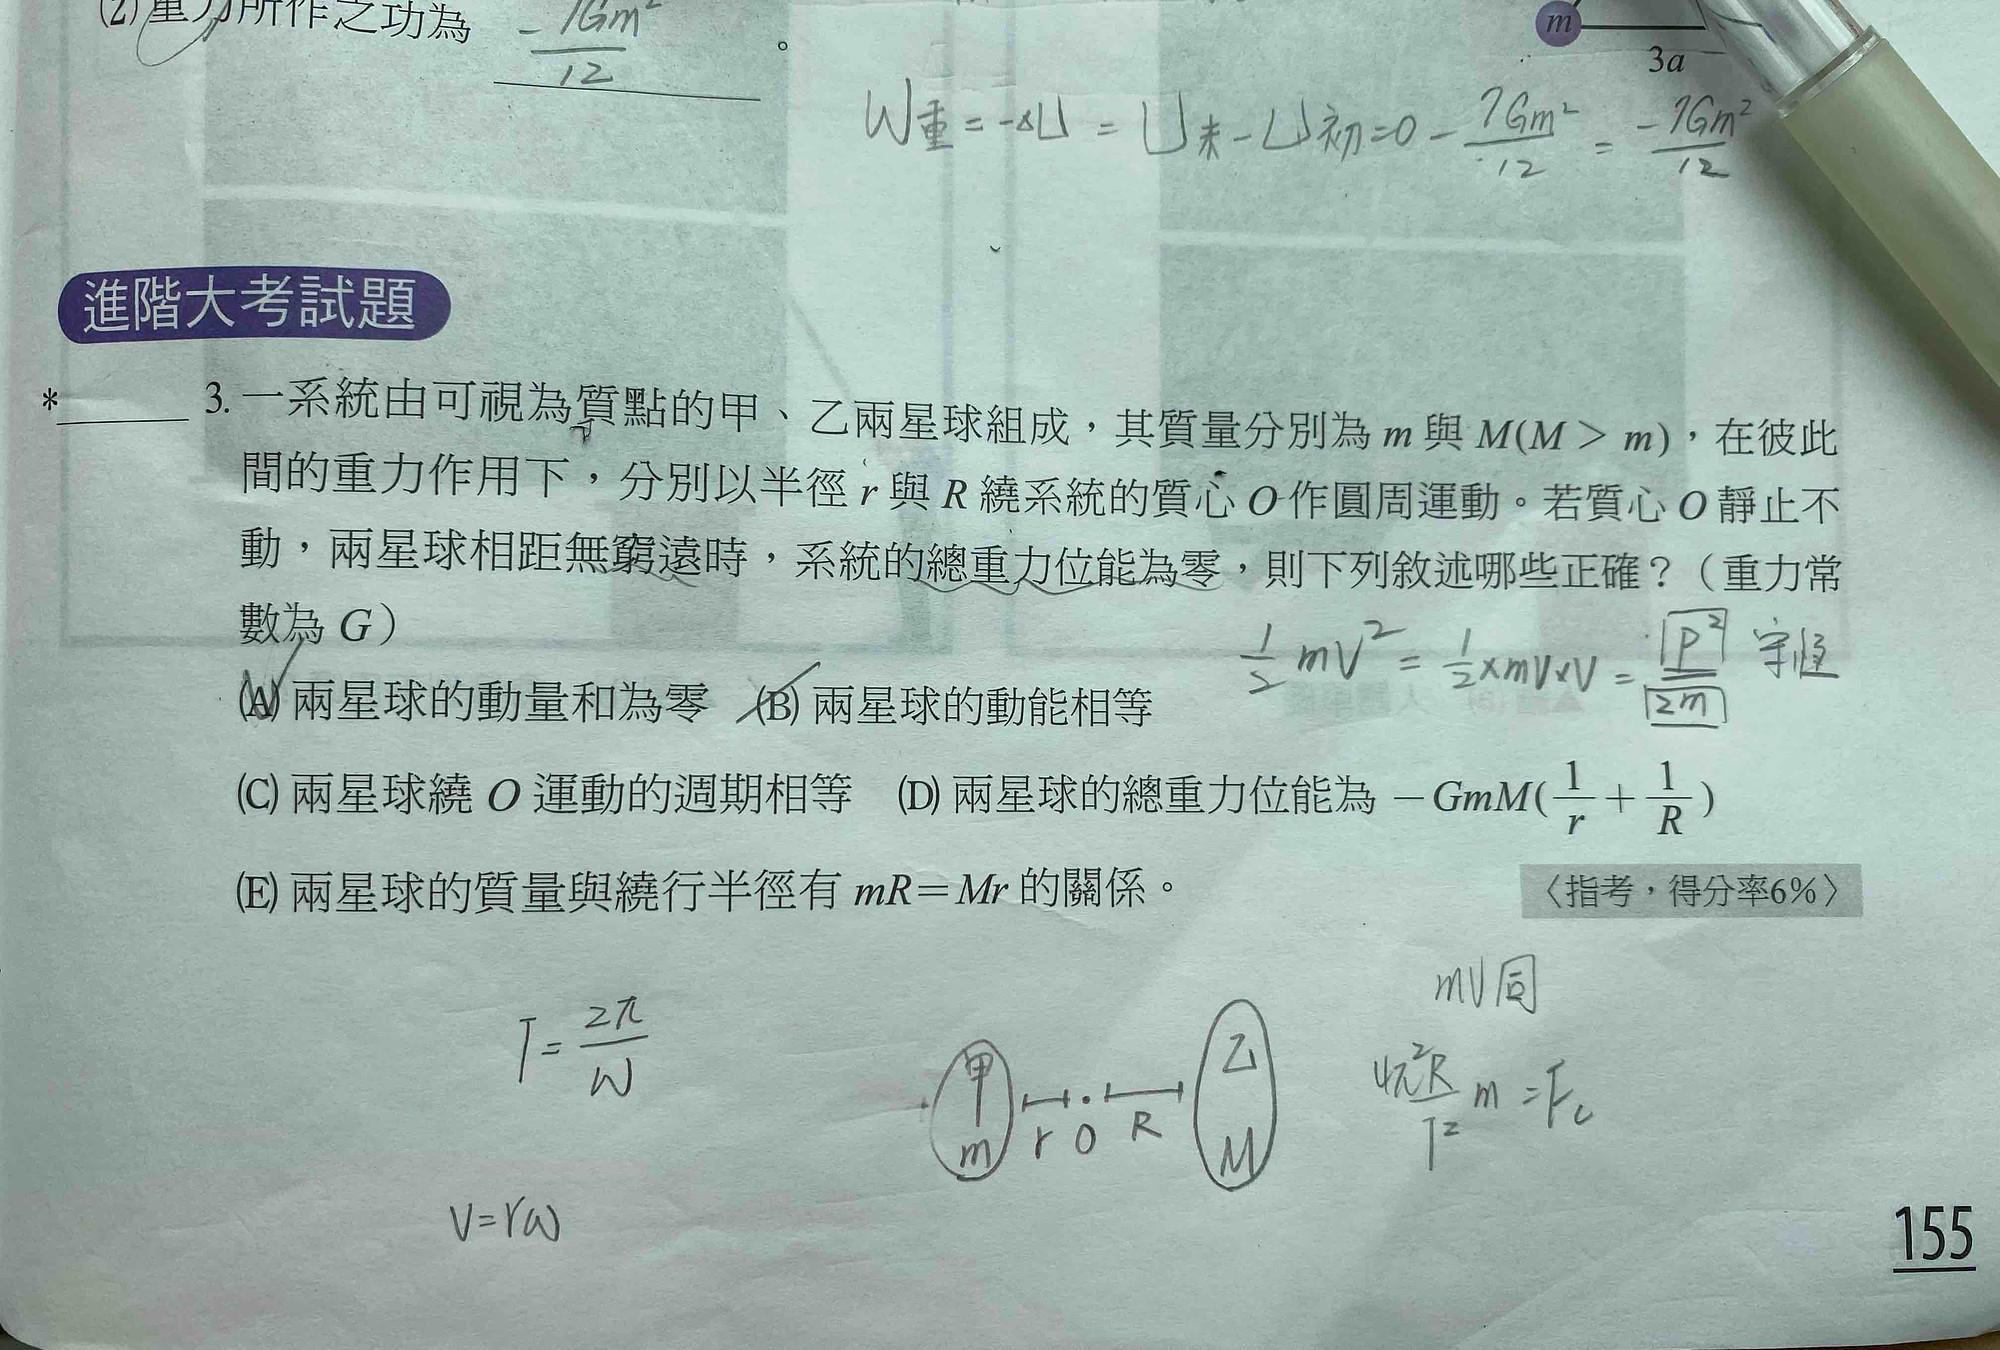 (2)重力所作之功為 -7Gm²/12 。
m
3a
W重 = -ΔU = U末 - U初 = 0 - 7Gm²/12 = -7Gm²/12
進階大考試題
* 3. 一系統由可視為質點的甲、乙兩星球組成，其質量分別為 m 與 M(M > m)，在彼此
間的重力作用下，分別以半徑 r 與 R 繞系統的質心 O 作圓周運動。若質心 O 靜止不
動，兩星球相距無窮遠時，系統的總重力位能為零，則下列敘述哪些正確？（重力常
數為 G）
½mV² = ½×mV×V = P²/2m 守恆
(A) 兩星球的動量和為零 (B) 兩星球的動能相等
(C) 兩星球繞 O 運動的週期相等 (D) 兩星球的總重力位能為 －GmM(1/r + 1/R)
(E) 兩星球的質量與繞行半徑有 mR＝Mr 的關係。
〈指考，得分率6%〉
T = 2π/ω
甲 m r O R 乙 M
mV同
4π²R/T² m = Fc
V = rω
155